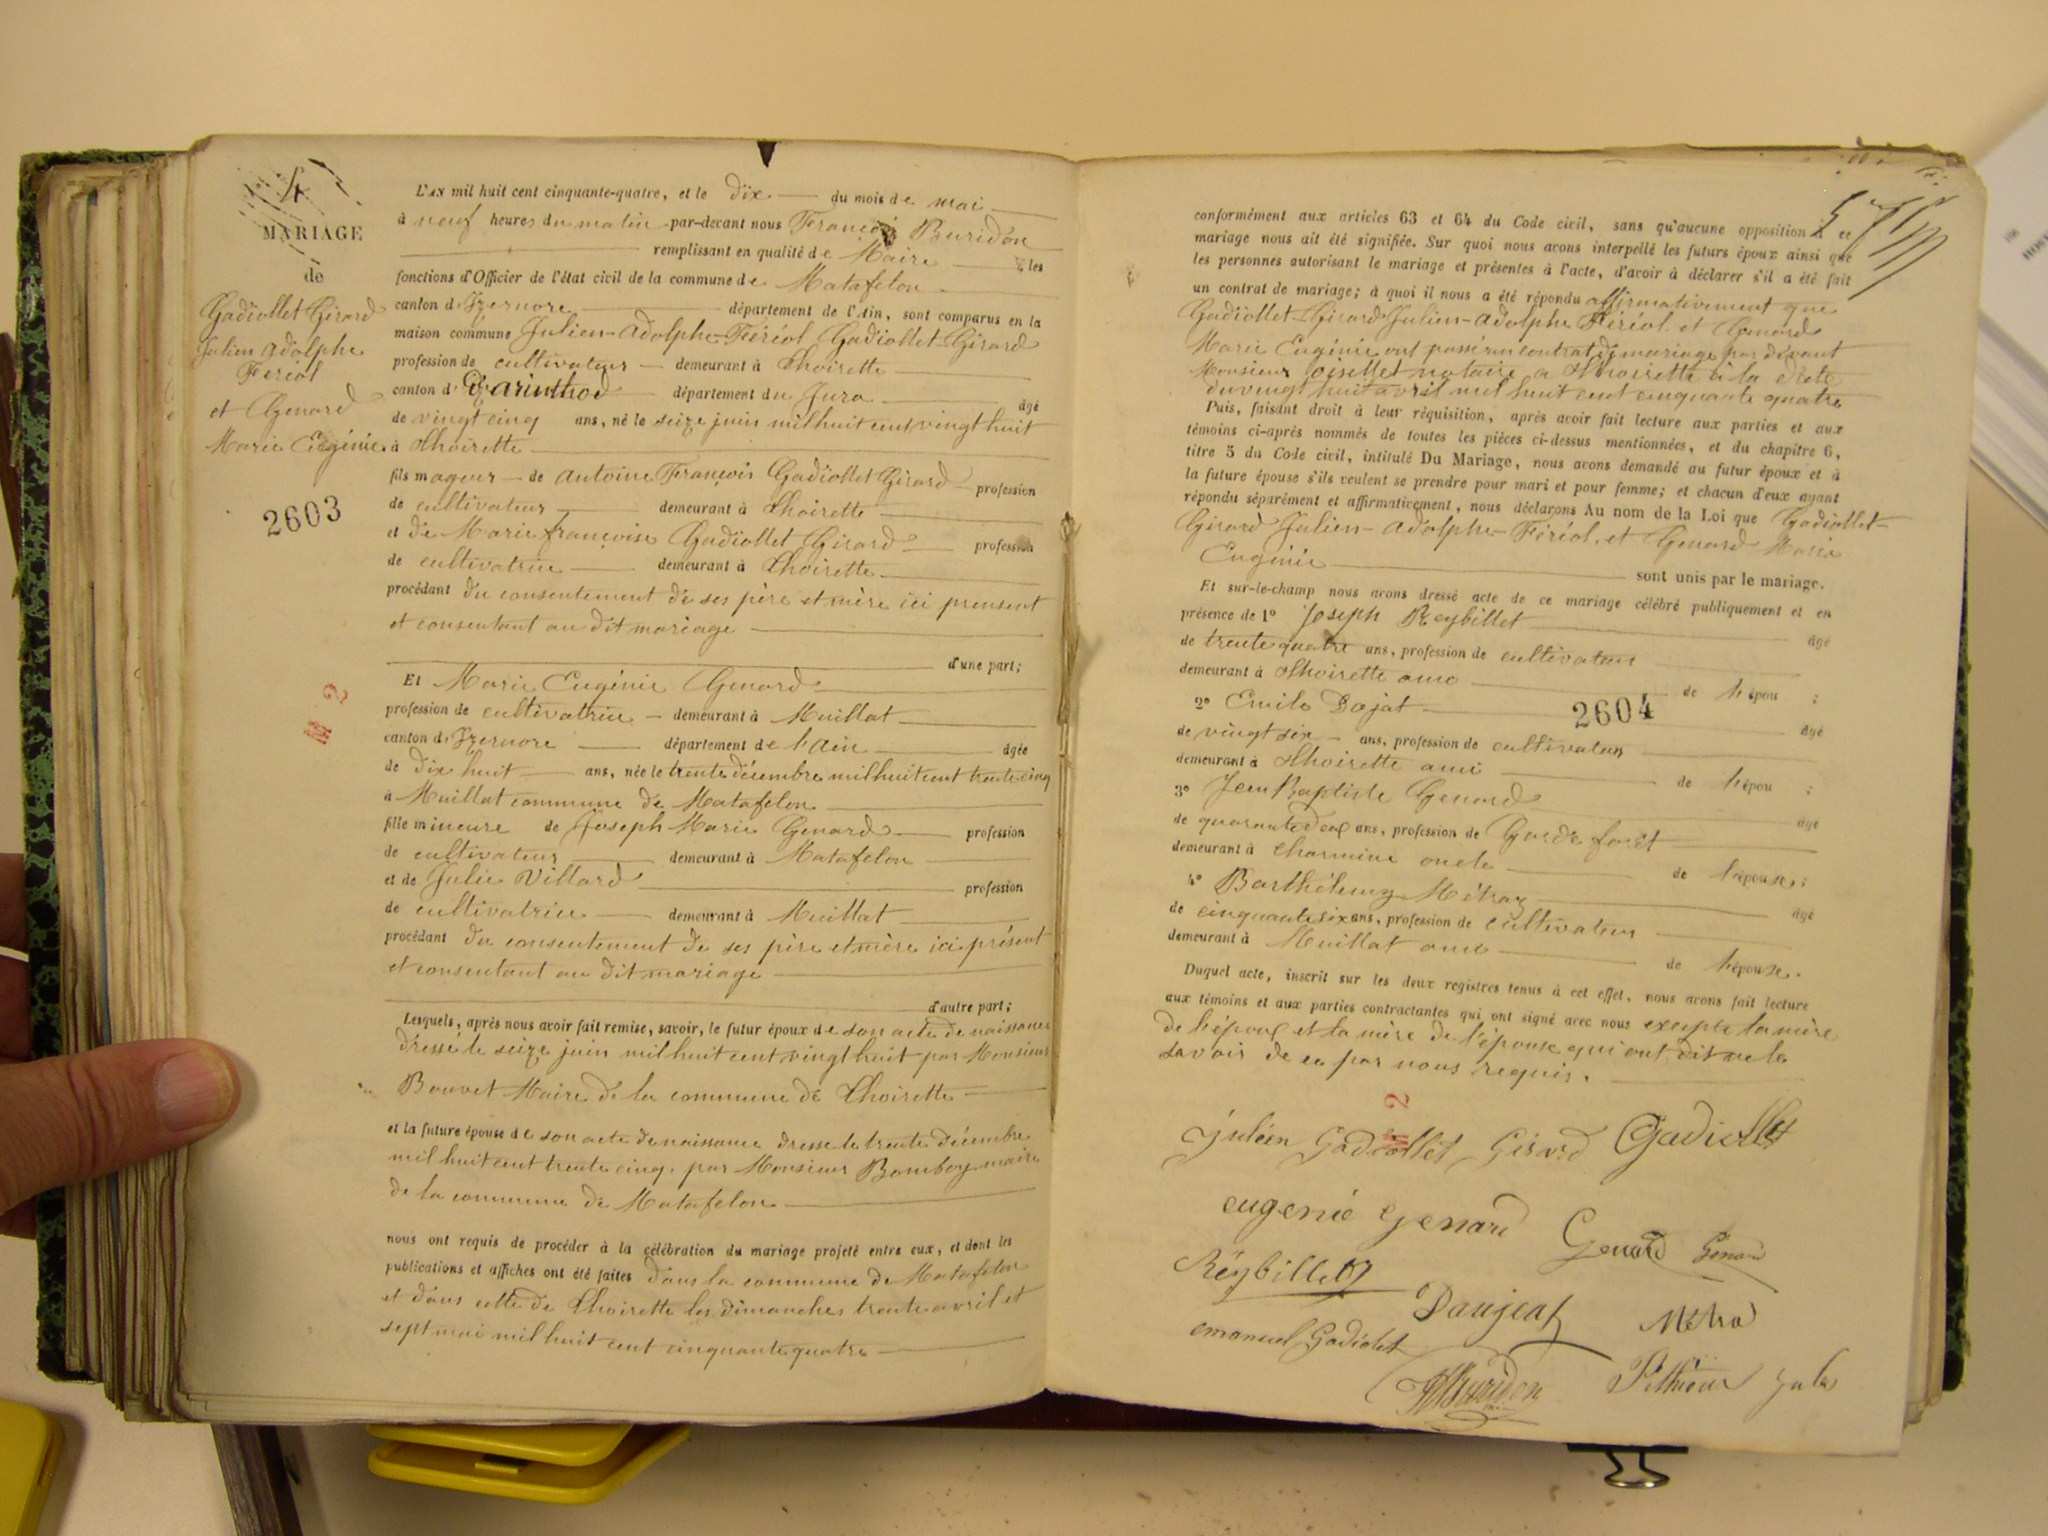 4
MARIAGE
de
Gadiollet Girard
Julien Adolphe
Feréol
et Genard
Marie Eugénie
2603
M 2
L'AN mil huit cent cinquante-quatre, et le dix du mois de mai
à neuf heures du matin par-devant nous François Buridon
remplissant en qualité de Maire les
fonctions d'Officier de l'état civil de la commune de Matafelon
canton d'Izernore département de l'Ain, sont comparus en la
maison commune Julien-Adolphe-Féréol Gadiollet-Girard
profession de cultivateur demeurant à Thoirette
canton d'Arinthod département du Jura âgé
de vingt cinq ans, né le seize juin mil huit cent vingt huit
à Thoirette
fils mageur de Antoine François Gadiollet Girard profession
de cultivateur demeurant à Thoirette
et de Marie françoise Gadiollet Girard profession
de cultivatrice demeurant à Thoirette
procédant du consentement de ses père et mère ici prensent
et consentant au dit mariage
d'une part;
Et Marie Eugénie Genard
profession de cultivatrice demeurant à Heuillat
canton d'Izernore département de l'Ain âgée
de dix huit ans, née le trente décembre mil huit cent trente cinq
à Heuillat commune de Matafelon
fille mineure de Joseph Marie Genard profession
de cultivateur demeurant à Matafelon
et de Julie Villard profession
de cultivatrice demeurant à Heuillat
procédant du consentement de ses père et mère ici présent
et consentant au dit mariage
d'autre part;
Lesquels, après nous avoir fait remise, savoir, le futur époux de son acte de naissance
dressé le seize juin mil huit cent vingt huit par Monsieur
Bouvet Maire de la commune de Thoirette
et la future épouse de son acte de naissance dresse le trente décembre
mil huit cent trente cinq, par Monsieur Bomboy maire
de la commune de Matafelon
nous ont requis de procéder à la célébration du mariage projeté entre eux, et dont les
publications et affiches ont été faites dans la commune de Matafelon
et dans celle de Thoirette les dimanches trente avril et
sept mai mil huit cent cinquante quatre
conformément aux articles 63 et 64 du Code civil, sans qu'aucune opposition à ce
mariage nous ait été signifiée. Sur quoi nous avons interpellé les futurs époux ainsi que
les personnes autorisant le mariage et présentes à l'acte, d'avoir à déclarer s'il a été fait
un contrat de mariage; à quoi il nous a été répondu affirmativement que
Gadiollet Girard Julien-Adolphe Féréol et Genard
Marie Eugénie ont passé un contrat de mariage par dévant
Monsieur Loisellet notaire a Thoirette à la date
du vingt huit avril mil huit cent cinquante quatre
Puis, faisant droit à leur réquisition, après avoir fait lecture aux parties et aux
témoins ci-après nommés de toutes les pièces ci-dessus mentionnées, et du chapitre 6,
titre 5 du Code civil, intitulé Du Mariage, nous avons demandé au futur époux et à
la future épouse s'ils veulent se prendre pour mari et pour femme; et chacun d'eux ayant
répondu séparément et affirmativement, nous déclarons Au nom de la Loi que Gadiollet-
Girard Julien-Adolphe-Féréol, et Genard Marie
Eugénie sont unis par le mariage.
Et sur-le-champ nous avons dressé acte de ce mariage célébré publiquement et en
présence de 1º Joseph Reybillet âgé
de trente quatre ans, profession de cultivateur
demeurant à Thoirette ami de l'épou ;
2604
2º Emile Dojat âgé
de vingt six ans, profession de cultivateur
demeurant à Thoirette ami de l'épou ;
3º Jean Baptiste Genard âgé
de quarante deux ans, profession de Garde forêt
demeurant à Charmine oncle de l'épouse;
4º Barthélemy Métraz âgé
de cinquante six ans, profession de cultivateur
demeurant à Heuillat ami de l'épouse.
Duquel acte, inscrit sur les deux registres tenus à cet effet, nous avons fait lecture
aux témoins et aux parties contractantes qui ont signé avec nous excepté la mère
de l'époux et la mère de l'épouse qui ont dit ne le
savoir de ce par nous requis.
M 2
julien Gadiollet Girard Gadiollet
eugenie genard Genard Genard
Réybillet
Daujat Métra
emanuel Gadiolet
Buridon